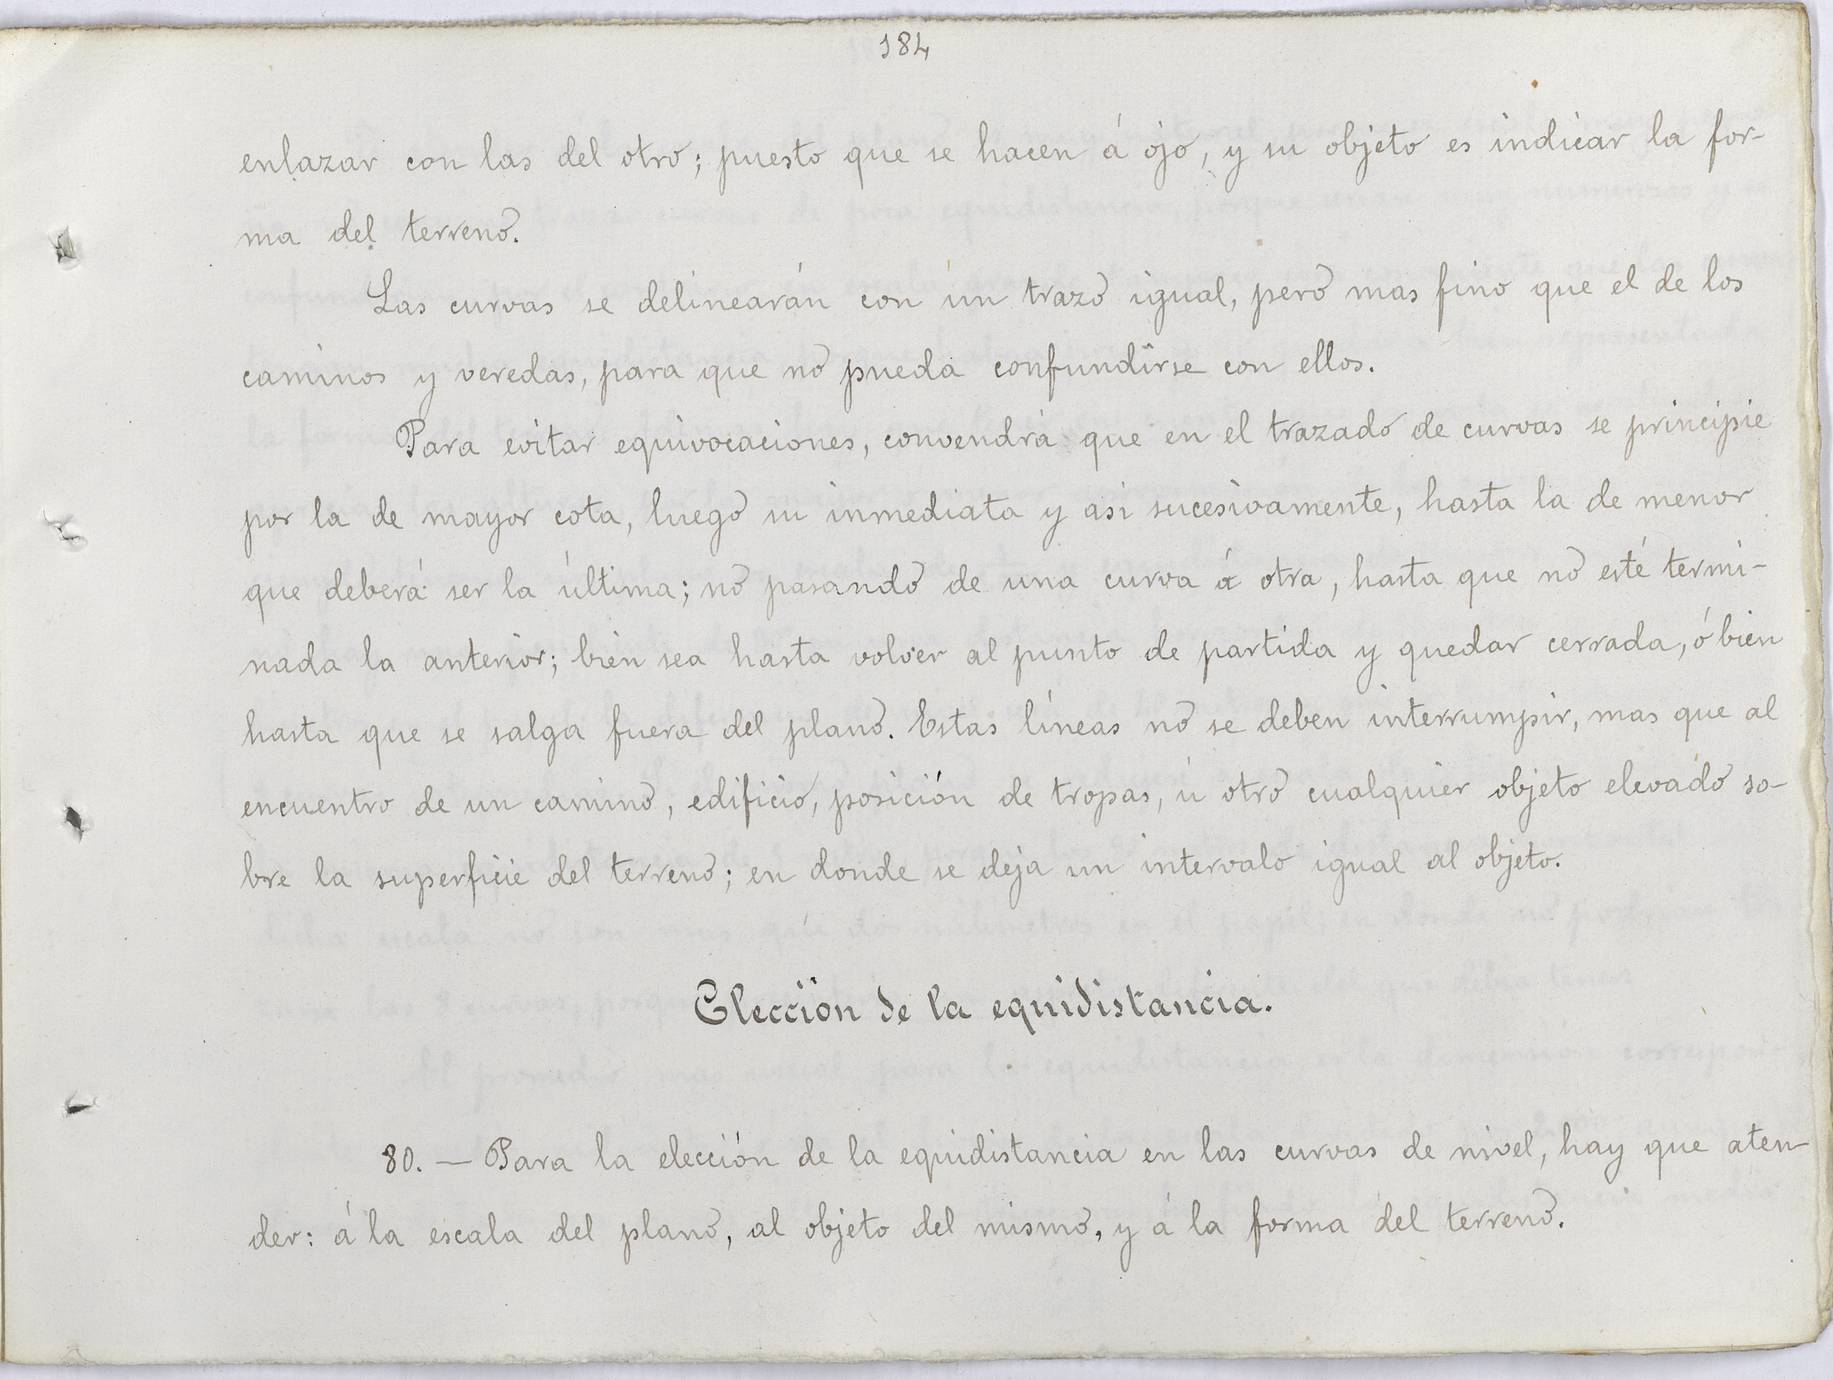 184
enlazar con las del otro; puesto que se hacen á ojo, y su objeto es indicar la for-
ma del terreno.
Las curvas se delinearán con un trazo igual, pero mas fino que el de los
caminos y veredas, para que no pueda confundirse con ellos.
Para evitar equivocaciones, convendrá que en el trazado de curvas se principie
por la de mayor cota, luego su inmediata y asi sucesivamente, hasta la de menor
que deberá ser la última; no pasando de una curva á otra, hasta que no esté termi-
nada la anterior; bien sea hasta volver al punto de partida y quedar cerrada, ó bien
hasta que se salga fuera del plano. Estas líneas no se deben interrumpir, mas que al
encuentro de un camino, edificio, posición de tropas, ú otro cualquier objeto elevado so-
bre la superficie del terreno; en donde se deja un intervalo igual al objeto.
Elección de la equidistancia.
80. — Para la elección de la equidistancia en las curvas de nivel, hay que aten-
der: á la escala del plano, al objeto del mismo, y á la forma del terreno.